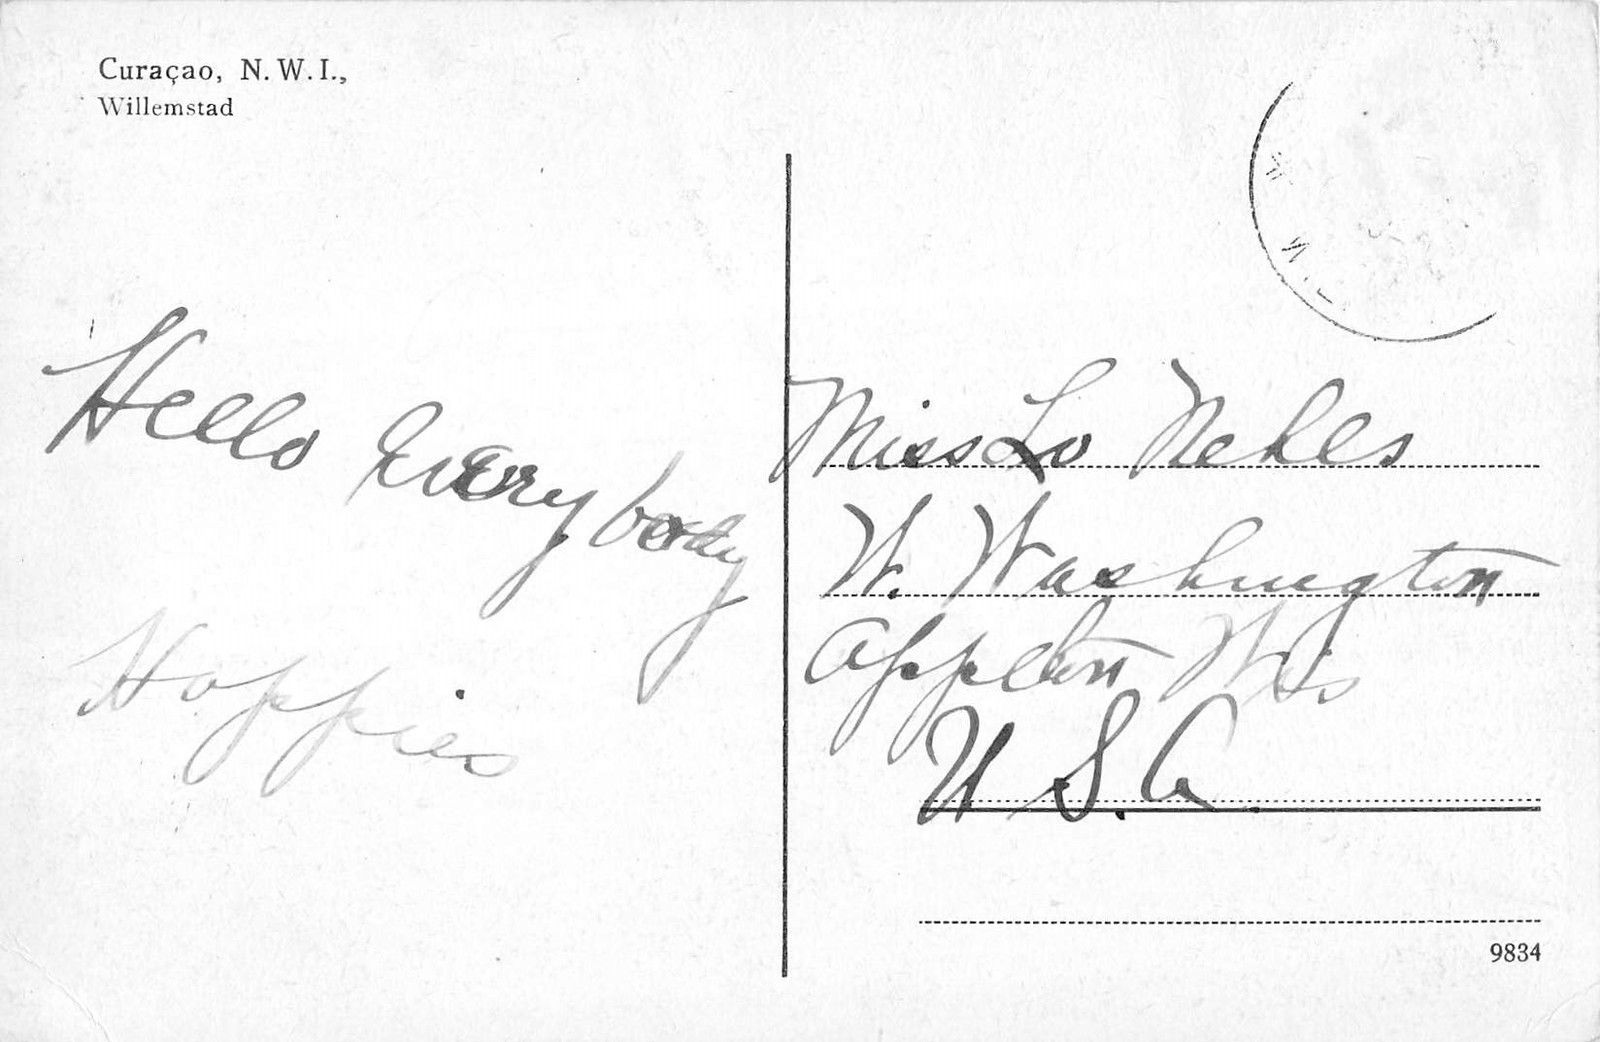 Curaçao, N.W.I.,
Willemstad
Hello Everybody
Hoppies
Miss Lo Nehls
W. Washington
Appleton Wis
U.S.A.
9834